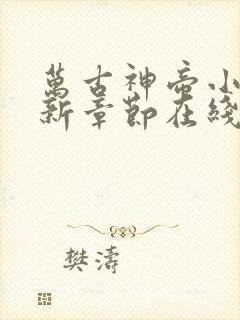 萬古神帝小
新章節在綫
樊濤